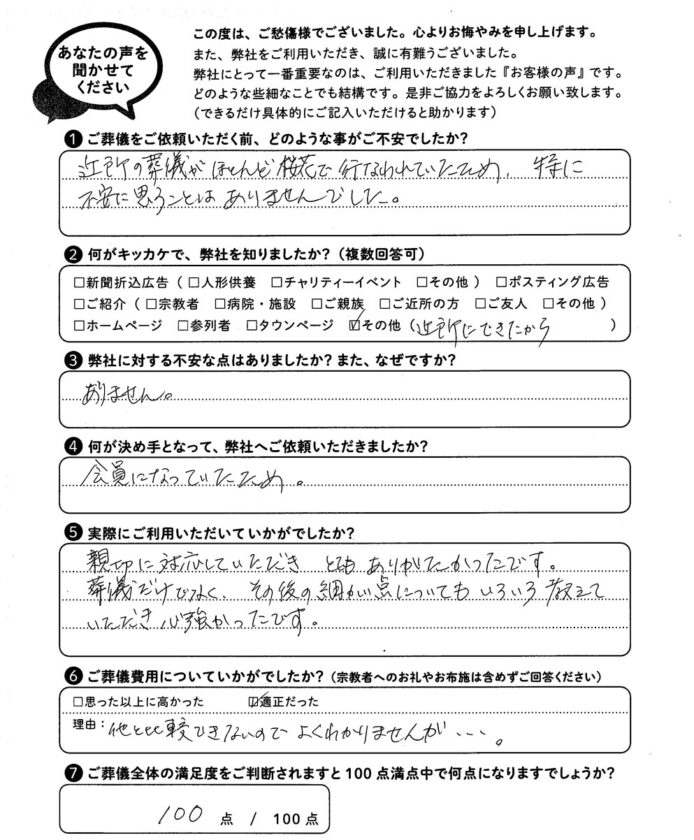 あなたの声を
聞かせて
ください
この度は、ご愁傷様でございました。心よりお悔やみを申し上げます。
また、弊社をご利用いただき、誠に有難うございました。
弊社にとって一番重要なのは、ご利用いただきました『お客様の声』です。
どのような些細なことでも結構です。是非ご協力をよろしくお願い致します。
(できるだけ具体的にご記入いただけると助かります)
❶ ご葬儀をご依頼いただく前、どのような事がご不安でしたか?
近所の葬儀がほとんど桜花で行なわれていたため、特に
不安に思うことはありませんでした。
❷ 何がキッカケで、弊社を知りましたか?(複数回答可)
□新聞折込広告(□人形供養 □チャリティーイベント □その他) □ポスティング広告
□ご紹介(□宗教者 □病院・施設 □ご親族 □ご近所の方 □ご友人 □その他)
□ホームページ □参列者 □タウンページ ☑その他(近所にできたから)
❸ 弊社に対する不安な点はありましたか?また、なぜですか?
ありません。
❹ 何が決め手となって、弊社へご依頼いただきましたか?
会員になっていたため。
❺ 実際にご利用いただいていかがでしたか?
親切に対応していただき とてもありがたかったです。
葬儀だけでなく、その後の細かい点についてもいろいろ教えて
いただき心強かったです。
❻ ご葬儀費用についていかがでしたか?(宗教者へのお礼やお布施は含めずご回答ください)
□思った以上に高かった ☑適正だった
理由:他と比較できないのでよくわかりませんが・・・。
❼ ご葬儀全体の満足度をご判断されますと100点満点中で何点になりますでしょうか?
100 点 / 100点